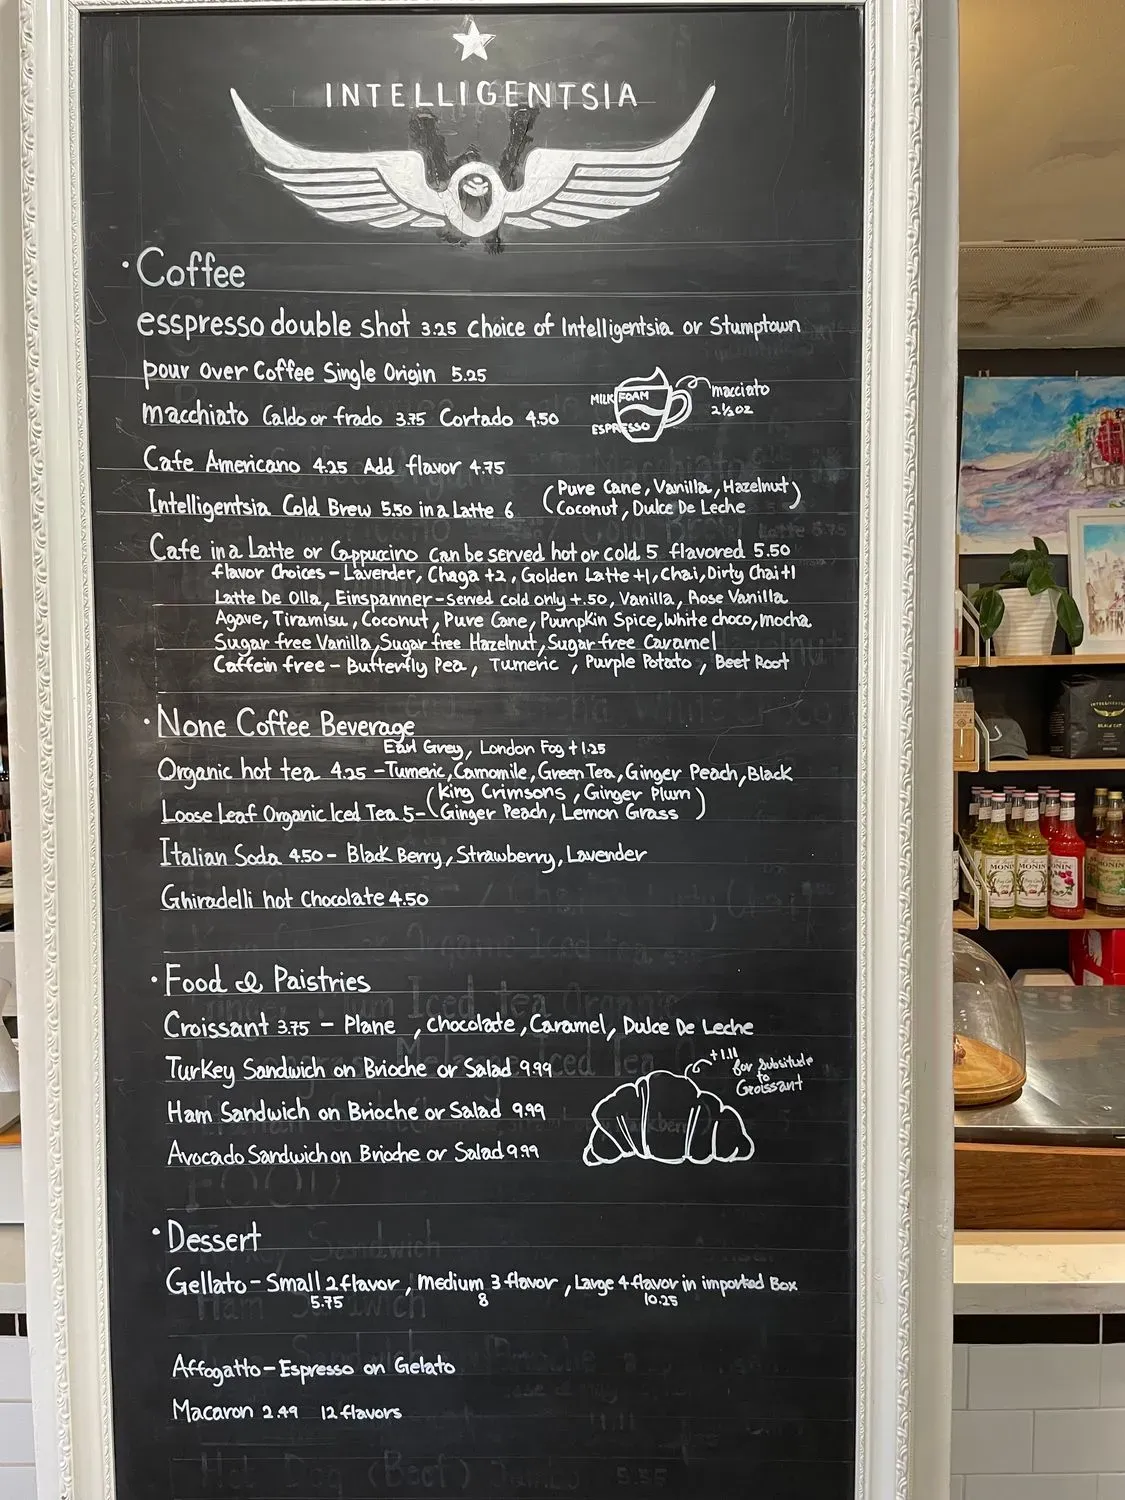 INTELLIGENTSIA
· Coffee
esspresso double shot 3.25 choice of Intelligentsia or Stumptown
pour over Coffee Single Origin 5.25
macchiato Caldo or frado 3.75 Cortado 4.50
MILK FOAM
ESPRESSO
macciato
2½ oz
Cafe Americano 4.25 Add flavor 4.75
Intelligentsia Cold Brew 5.50 in a Latte 6
(Pure Cane, Vanilla, Hazelnut)
Coconut, Dulce De Leche
Cafe in a Latte or Cappuccino can be served hot or cold 5 flavored 5.50
flavor Choices – Lavender, Chaga +2, Golden Latte +1, Chai, Dirty Chai +1
Latte De Olla, Einspanner – served cold only +.50, Vanilla, Rose Vanilla
Agave, Tiramisu, Coconut, Pure Cane, Pumpkin Spice, White choco, mocha
Sugar free Vanilla, Sugar free Hazelnut, Sugar free Caramel
Caffein free – Butterfly Pea, Tumeric, Purple Potato, Beet Root
· None Coffee Beverage
Earl Grey, London Fog +1.25
Organic hot tea 4.25 – Tumeric, Camomile, Green Tea, Ginger Peach, Black
(King Crimsons, Ginger Plum)
Loose Leaf Organic Iced Tea 5 – Ginger Peach, Lemon Grass
Italian Soda 4.50 – Black Berry, Strawberry, Lavender
Ghiradelli hot Chocolate 4.50
· Food & Paistries
Croissant 3.75 – Plane, chocolate, Caramel, Dulce De Leche
Turkey Sandwich on Brioche or Salad 9.99
+1.11
for Subsitude
to
Croissant
Ham Sandwich on Brioche or Salad 9.99
Avocado Sandwich on Brioche or Salad 9.99
· Dessert
Gellato – Small 2 flavor, medium 3 flavor, Large 4 flavor in imported Box
5.75 8 10.25
Affogatto – Espresso on Gelato
Macaron 2.49 12 flavors
INTELLIGENTSIA
MONIN
MONIN
MONIN
MONIN